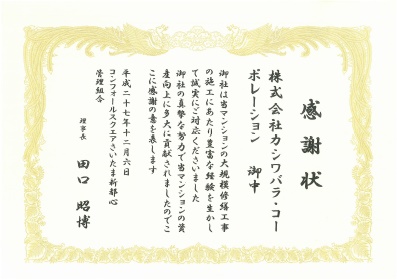 感謝状
株式会社カシワバラ・コー
ポレーション 御中
御社は当マンションの大規模修繕工事
の施工にあたり豊富な経験を生かし
て誠実にご対応くださいました
御社の真摯な努力で当マンションの資
産向上に多大に貢献されましたのでこ
こに感謝の意を表します
平成二十七年十二月六日
コンフォールスクエアさいたま新都心
管理組合
理事長 田口 昭博